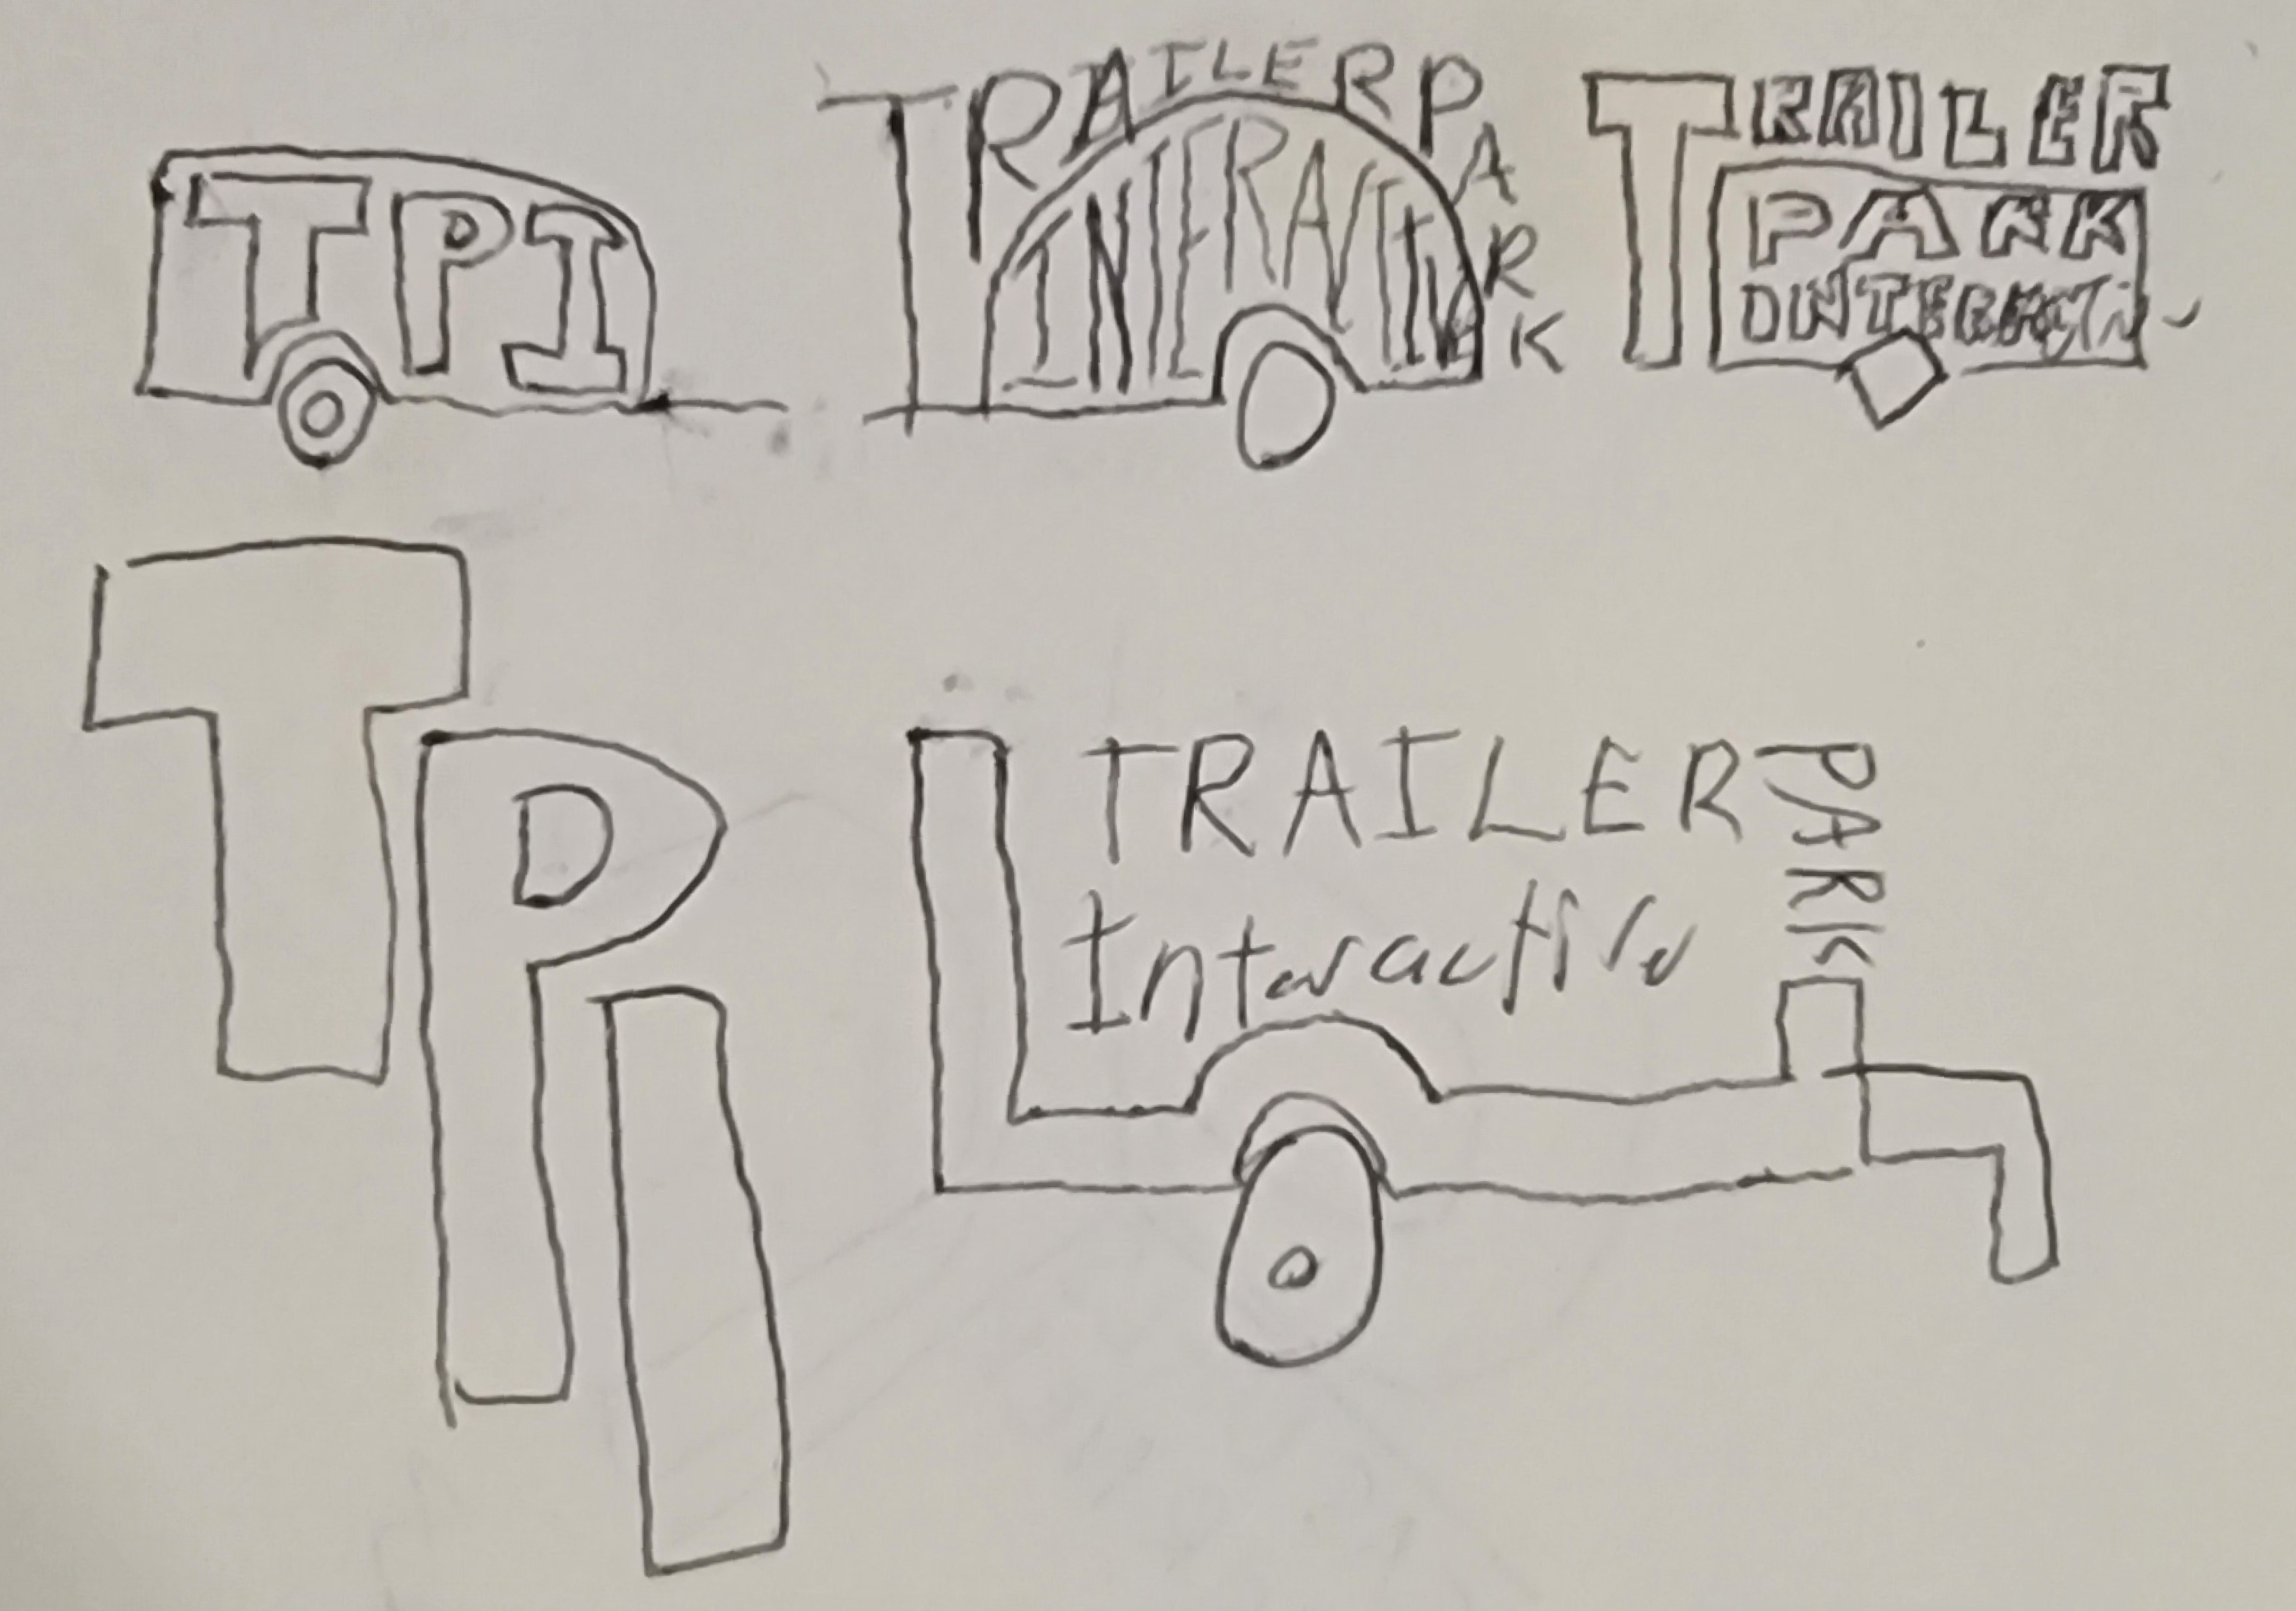 TPI
TRAILER PARK
INTERACTIVE
TRAILER
PARK
TPI
TRAILER PARK
Interactive